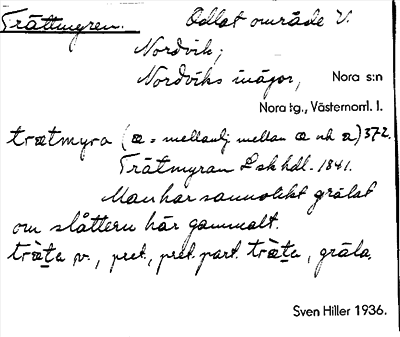 Trättmyren. Odlat område V.
Nordvik,
Nordviks inägor, Nora s:n
Nora tg., Västernorrl. l.
trætmyra (æ = mellanlj mellan æ och a) 372.
Trätmyran Lsk hdl. 1841.
Man har sannolikt grälat
om slåttern här gammalt.
træ̀ta v., pret., pret. part. træ̀ta, gräla.
Sven Hiller 1936.